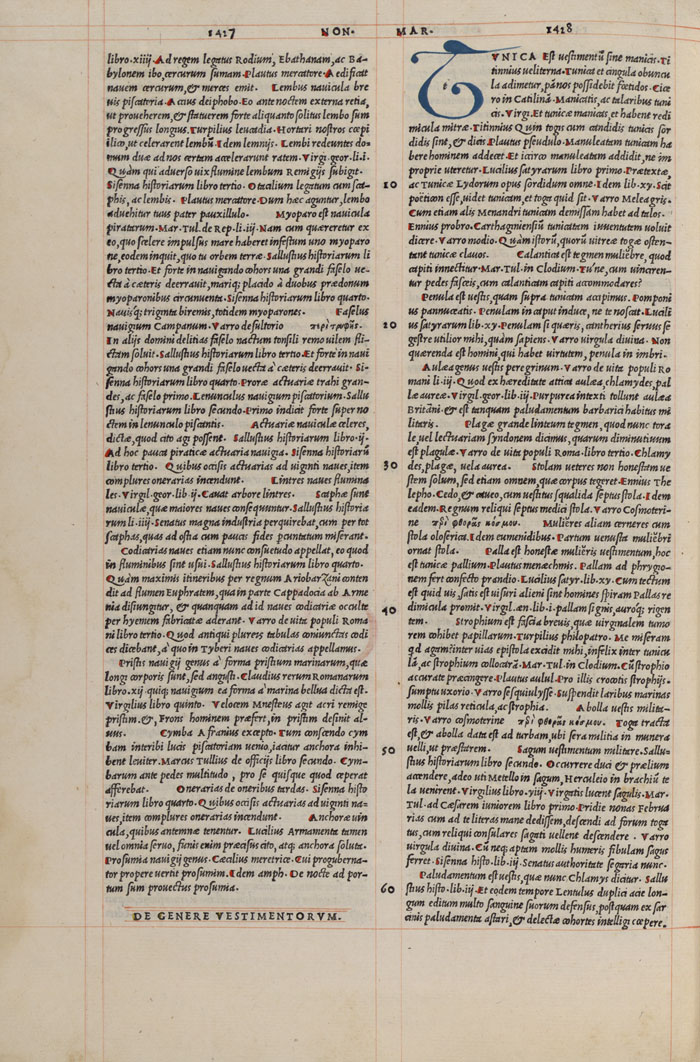 1417 NON. MAR. 1418
libro.xiiij. Ad regem legatus Rodium, Ebathanam, ac Ba-
bylonem ibo, cercurum sumam. Plautus mercatore. Aedificat
nauem cercurum, & merces emit. Lembus nauicula bre
uis piscatoria. Accius deiphobo. Eo ante noctem externa retia,
ut proueherem, & statuerem forte aliquanto solitus lembo sum
progressus longius. Turpilius leucadia. Hortari nostros coepi
ilico, ut celerarent lembū. Idem lemnijs. Lembi redeuntes do-
mum duæ ad nos certam accelerarunt ratem. Virg.geor.li.i.
Quàm qui aduerso uix flumine lembum Remigijs subigit.
Sisenna historiarum libro tertio. Otacilium legatum cum sca-
phis, ac lembis. Plautus mercatore. Dum hæc aguntur, lembo
aduehitur tuus pater pauxillulo. Myoparo est nauicula
piratarum. Mar.Tul.de Rep.li.iij. Nam cum quæreretur ex
eo, quo scelere impulsus mare haberet infestum uno myoparo
ne, eodem inquit, quo tu orbem terræ. Sallustius historiarum li
bro tertio. Et forte in nauigando cohors una grandi faselo ue-
cta à cæteris deerrauit, mariq; placido à duobus prædonum
myoparonibus circumuenta. Sisenna historiarum libro quarto.
Nauisq; triginta biremis, totidem myoparones. Faselus
nauigium Campanum. Varro desultorio
In alijs domini delitias faselo nactum tonsili remo uilem fli-
ctam soluit. Sallustius historiarum libro tertio. Et forte in naui
gando cohors una grandi faselo uecta à cæteris deerrauit. Si-
senna historiarum libro quarto. Proræ actuariæ trahi gran-
des, ac faselo primo. Lenunculus nauigium piscatorium. Sallu
stius historiarum libro secundo. Primo incidit forte super no
ctem in lenunculo piscantis. Actuariæ nauiculæ celeres,
dictæ, quod cito agi possent. Sallustius historiarum libro.ij.
Ad hoc paucæ piraticæ actuaria nauigia. Sisenna historiarū
libro tertio. Quibus occisis actuarias ad uiginti naues, item
complures onerarias incendunt. Lintres naues flumina
les. Virgil.geor.lib.ij. Cauat arbore lintres. Scaphæ sunt
nauiculæ, quæ maiores naues consequuntur. Sallustius historia
rum li.iiij. Senatus magna industria perquirebat, cum per tot
scaphas, quas ad ostia cum paucis fides pcuntatum miserant.
Codicatias naues etiam nunc consuetudo appellat, eo quod
in fluminibus sint usui. Sallustius historiarum libro quarto.
Quàm maximis itineribus per regnum Ariobarzani conten
dit ad flumen Euphratem, qua in parte Cappadocia ab Arme
nia disiungitur, & quanquam ad id naues codicatiæ occulte
per hyemem fabricatæ aderant. Varro de uita populi Roma
ni libro tertio. Quod antiqui plureis tabulas coniunctas codi
ces dicebant, à quo in Tyberi naues codicatias appellamus.
Pristis nauigij genus à forma pristium marinarum, quæ
longi corporis sunt, sed angusti. Claudius rerum Romanarum
libro.xij.quiq; nauigium ea forma à marina bellua dicta est.
Virgilius libro quinto. Velocem Mnesteus agit acri remige
pristim. &, Frons hominem præfert, in pristim desinit al-
uus. Cymba Afranius excepto. Tum conscendo cym
bam interibi luci piscatoriam uenio, iacitur anchora inhi-
bent leuiter. Marcus Tullius de officijs libro secundo. Cym-
barum ante pedes multitudo, pro se quisque quod ceperat
afferebat. Onerariæ de oneribus tardæ. Sisenna histo
riarum libro quarto. Quibus occisis actuarias ad uiginti na-
ues, item complures onerarias incendunt. Anchoræ uin
cula, quibus antemnæ tenentur. Lucilius Armamenta tamen
uel omnia seruo, funis enim præcisus cito, atq; anchora soluta.
Prosumia nauigij genus. Cæcilius meretrice. Cui progubernа-
tor propere uertit prosumiam. Idem amph. De nocte ad por-
tum sum prouectus prosumia.
DE GENERE VESTIMENTORVM.
TVNICA Est uestimentū sine manicis. Ti
tinnius ueliterna. Tunica et cingula obuncu
la adimetur, pānos possidebit foetidos. Cice
ro in Catilinā. Manicatis, ac talaribus tuni
cis. Virg. Et tunicæ manicas, et habent redi
micula mitræ. Titinnius Quin togis cum candidis tunicis sor
didis sint, & dicis Plautus pseudulo. Manuleatam tunicam ha
bere hominem addecet. Et iccirco manuleatam addidit, ne im
proprie uteretur. Lucilius satyrarum libro primo. Prætextæ,
10 ac Tunicæ Lydorum opus sordidum omne. Idem lib.xy. Scit
poëticon esse, uidet tunicam, et toga quid sit. Varro Meleagris.
Cum etiam alis Menandri tunicam demissam habet ad talos.
Ennius probro. Carthaginensiū tunicatam iuuentutem uoluit
dicere. Varro modio. Quàm istorū, quorū uitreæ togæ osten-
tant tunicæ clauos. Calantica est tegmen muliebre, quod
capiti innectitur. Mar.Tul.in Clodium. Tu'ne, cum uinciren-
tur pedes fascijs, cum calanticam capiti accommodares?
Penula est uestis, quam supra tunicam accipimus. Pomponi
us pannuceatis. Penulam in caput induce, ne te noscat. Lucili
20 us satyrarum lib.xy. Penulam si quæris, cantherius seruus se
gestre utilior mihi, quàm sapiens. Varro uirgula diuina. Non
quærenda est homini, qui habet uirtutem, penula in imbri.
Aulæa genus uestis peregrinum. Varro de uita populi Ro
mani li.iij. Quod ex hæreditate attici aulæa, chlamydes, pal
læ aureæ. Virgil.geor.lib.iij. Purpurea intexti tollunt aulæa
Britāni. & est tanquam paludamentum barbarici habitus mi
litaris. Plagæ grande linteum tegmen, quod nunc tora
le, uel lectuariam syndonem dicimus, quarum diminutiuum
est plagulæ. Varro de uita populi Roma.libro tertio. Chlamy
30 des, plagæ, uela aurea. Stolam ueteres non honestam ue
stem solum, sed etiam omnem, quæ corpus tegeret. Ennius The
lepho. Cedo, & caueo, cum uestitus squalida septus stola. Idem
eadem. Regnum reliqui septus medici stola. Varro Cosmotori-
ne περὶ φθορᾶς κόσμου. Mulieres aliam cerneres cum
stola oloferica. Idem eumenidibus. Partim uenusta muliebri
ornat stola. Palla est honestæ mulieris uestimentum, hoc
est tunicæ pallium. Plautus menæchmis. Pallam ad phrygio-
nem fert confecto prandio. Lucilius satyr.lib.xy. Cum tectum
est quid uis, satis est uisuri alieni sint homines spiram Pallas re
40 dimicula promit. Virgil.æn.lib.i. pallam signis, auroq; rigen
tem. Strophium est fascia breuis, quæ uirginalem tumo
rem cohibet papillarum. Turpilius philopatro. Me miseram
qd agam? inter uias epistola excidit mihi, infelix inter tunicu
lā, ac strophium collocarā. Mar.Tul.in Clodium. Cū strophio
accurate præcingere. Plautus aulul. Pro illis crocotis strophijs,
sumptu uxorio. Varro sesquiulysse. Suspendit laribus marinas
mollis pilas reticula, ac strophia. Abolla uestis milita-
ris. Varro cosmoterine περὶ φθορᾶς κόσμου. Toga tracta
est, & abolla data est ad turbam, ubi fera militia in munera
50 uelli, ut præstarem. Sagum uestimentum militare. Sallu-
stius historiarum libro secundo. Occurrere duci & prælium
accendere, adeo uti Metello in sagum, Herculeio in brachiū te
la uenirent. Virgilius libro.viij. Virgatis lucent sagulis. Mar.
Tul.ad Cæsarem iuniorem libro primo. Pridie nonas Februa
rias cum ad te literas mane dedissem, descendi ad forum toga
tus, cum reliqui consulares sagati uellent descendere. Varro
uirgula diuina. Cū neq; aptam mollis humeris fibulam sagus
ferret. Sisenna histo.lib.iij. Senatus authoritate segaria nunc.
Paludamentum est uestis, quæ nunc Chlamys dicitur. Sallu
60 stius histo.lib.iij. Et eodem tempore Lentulus duplici acie lon-
gum editum multo sanguine suorum defensus, postquam ex sar
cinis paludamenta astari, & delectæ cohortes intelligi coepere,